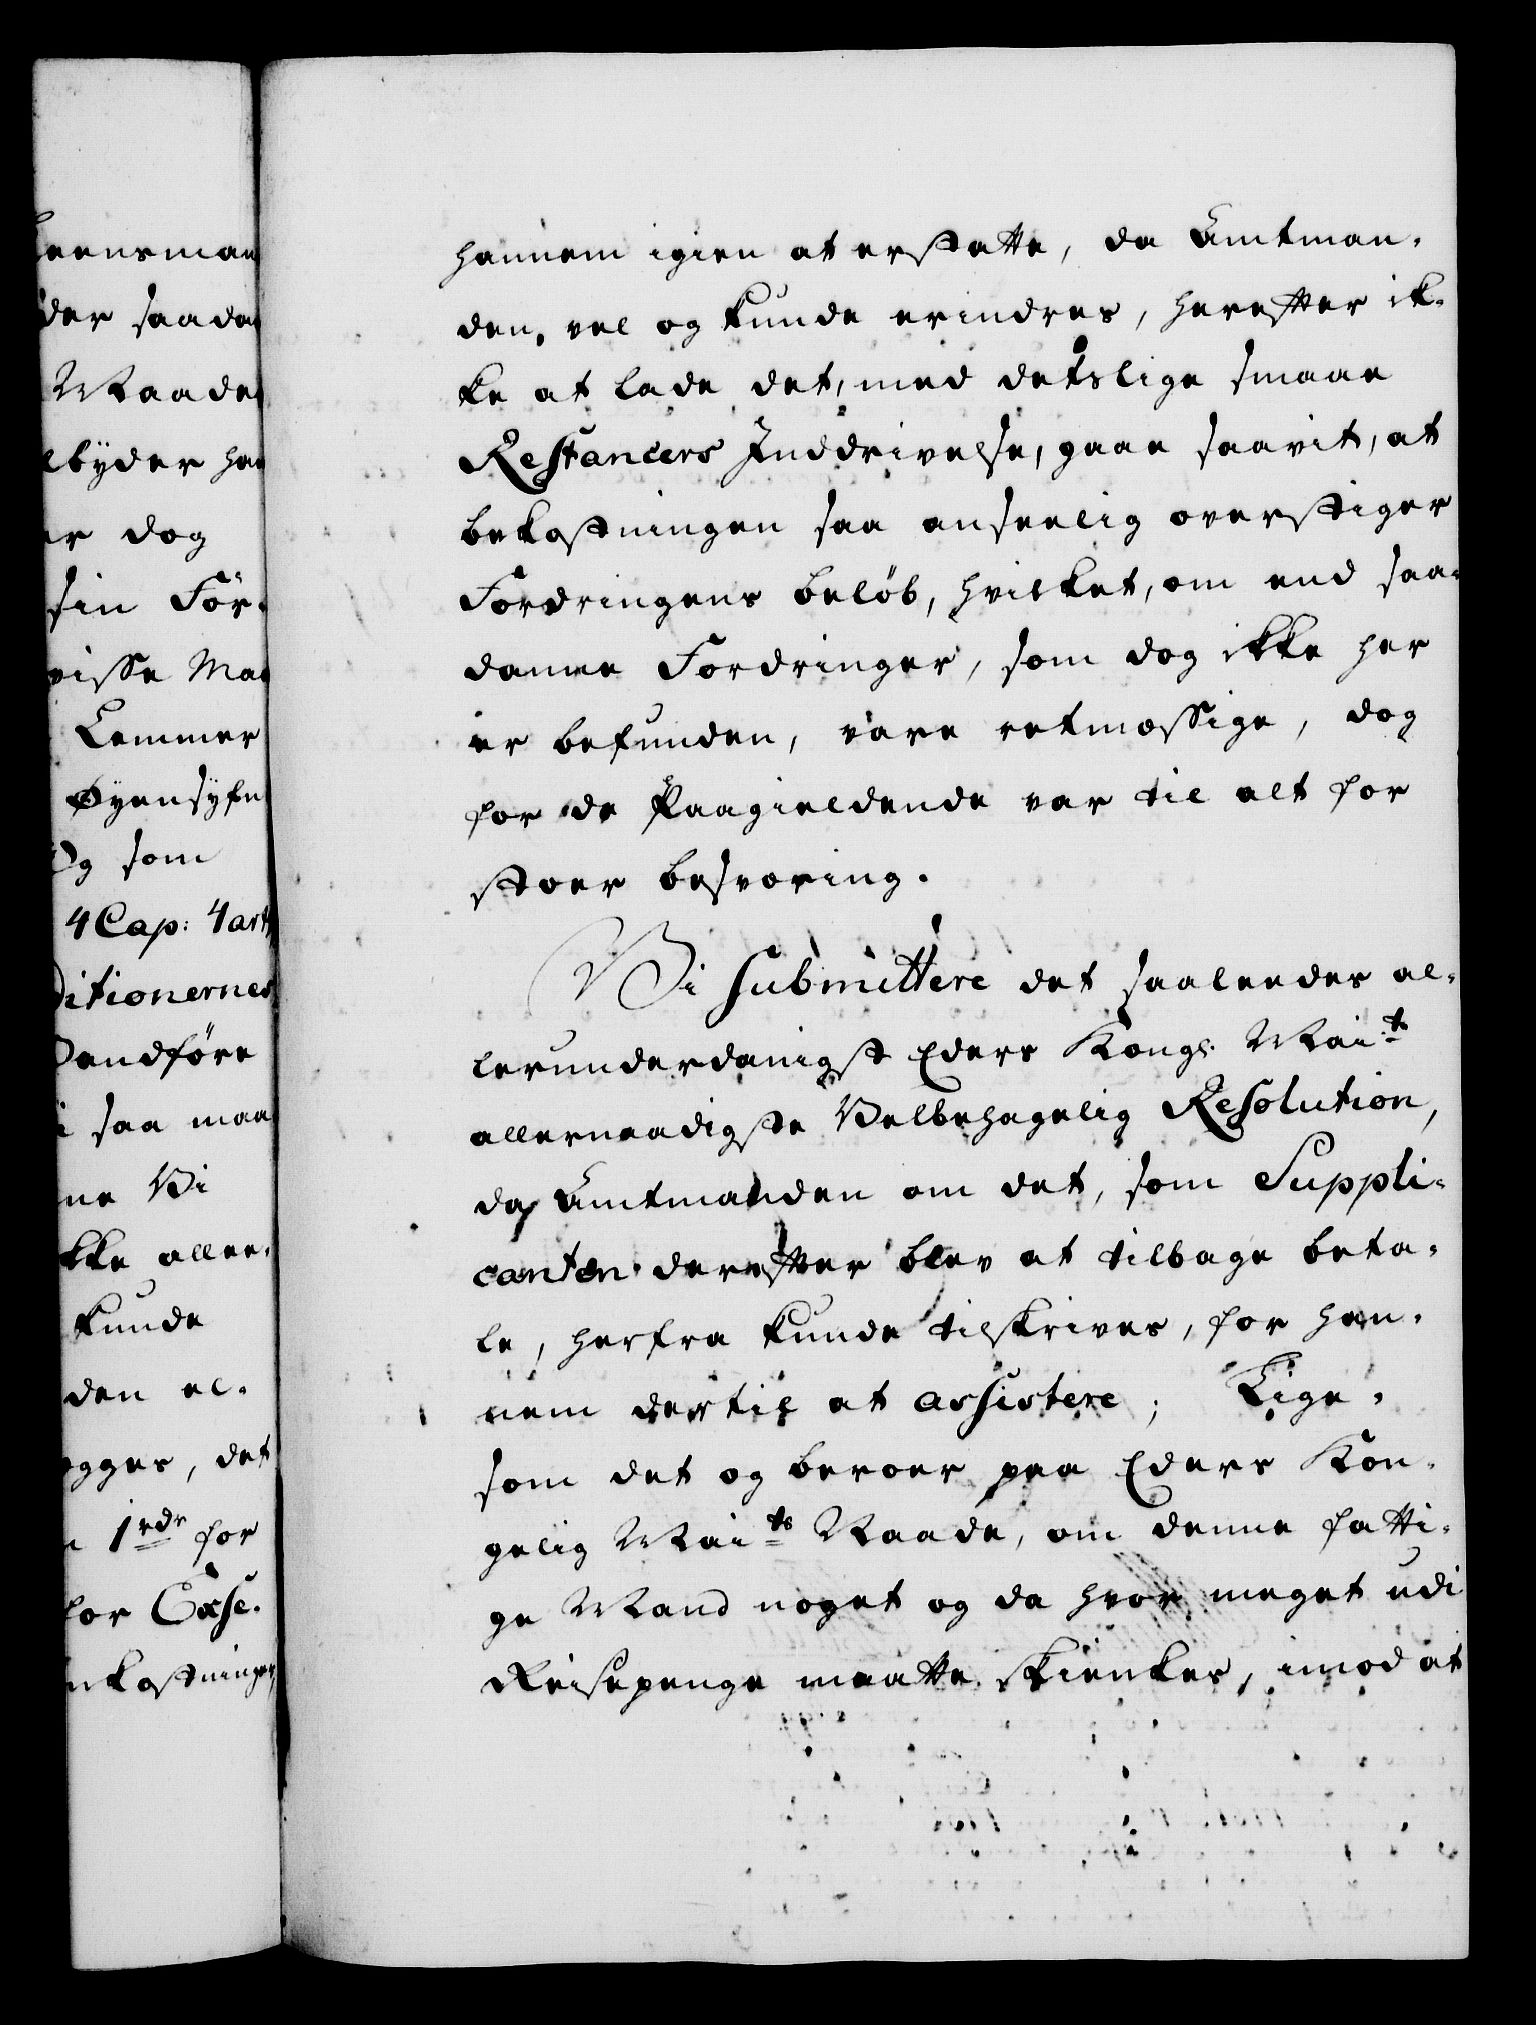 Leensman
der saada
Maade
lbyder ha
er dog
sin För-
visse Ma
Lemmer
Øyensyn
Og som
4 Cap: 4 art
ditionernes
Vandföre
i saa maa
ne Vi
kke aller-
kunde
den el-
egges, det
1 rdr for
for Exse-
nkostninger
hannem igien at erstatte, da Amtman-
den, vel og kunde erindres, herefter ik-
ke at lade det, med detslige smaae
Restancers Inddrivelse, gaae saavit, at
bekostningen saa anseelig overstiger
Fordringens beløb, hvilket, om end saa-
danne Fordringer, som dog ikke her
er befunden, vare retmæssige, dog
for de Paagieldende var til alt for
stoer besværing.
Vi submittere det saaleedes al-
lerunderdanigst Eders Kongl. Mai:ts
allernaadigste Velbehagelig Resolution,
da Amtmanden om det, som Suppli-
canten derefter blev at tilbage beta-
le, herfra kunde tilskrives, for han-
nem dertil at assistere; Lige-
som det og beroer paa Eders Kon-
gelig Mai:ts Naade, om denne fatti-
ge Mand noget og da hvor meget udi
Reisepenge maatte skienkes, imod at